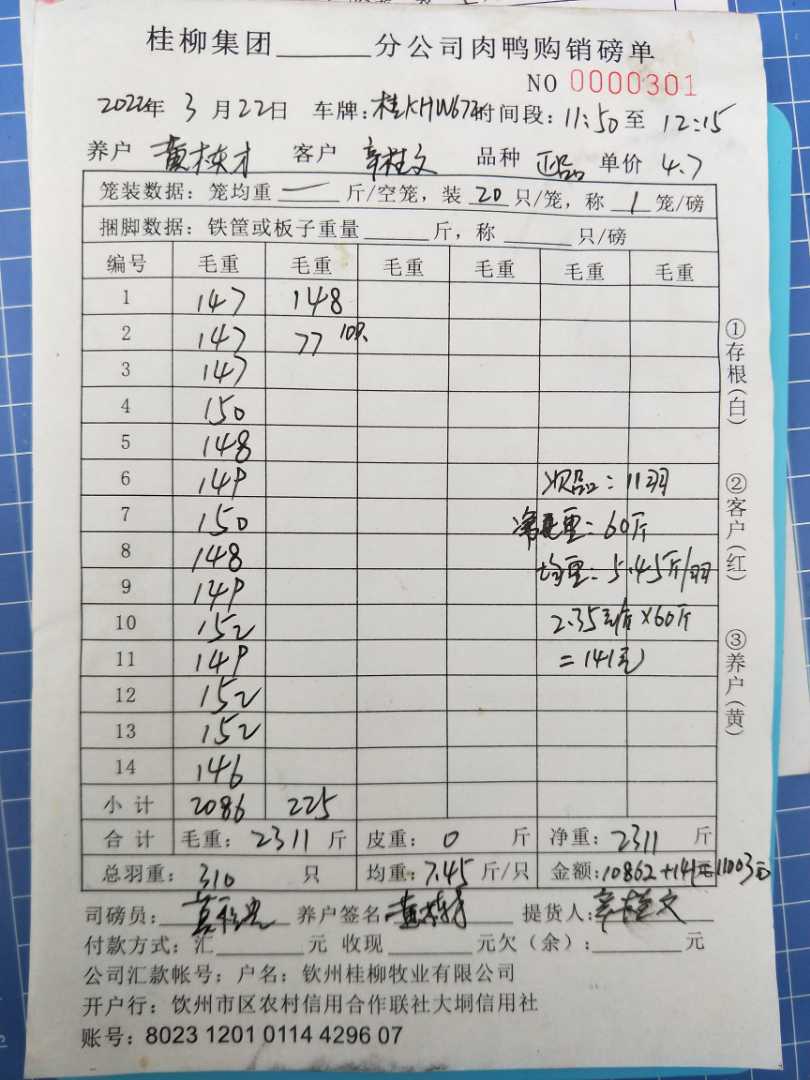 桂柳集团______分公司肉鸭购销磅单
NO 0000301
2022年 3月22日 车牌:桂KHW672 时间段:11:50至 12:15
养户 黄 才 客户 辛桂文 品种 正品 单价 4.7
笼装数据:笼均重 一 斤/空笼,装 20 只/笼,称 1 笼/磅
捆脚数据:铁筐或板子重量______斤,称______只/磅
编号 毛重 毛重 毛重 毛重 毛重 毛重
1 147 148
2 147 77 10只
3 147
4 150
5 148
6 149 次品:11羽
7 150 净重:60斤
8 148 均重:5.45斤/羽
9 149
10 152 2.35元/斤×60斤
11 149 =141元
12 152
13 152
14 146
小计 2086 225
合计 毛重:2311斤 皮重:0 斤 净重:2311 斤
总羽重:310 只 均重:7.45斤/只 金额:10862+141=11003元
司磅员: 养户签名 提货人:辛桂文
付款方式:汇______元 收现______元欠(余):______元
公司汇款帐号:户名:钦州桂柳牧业有限公司
开户行:钦州市区农村信用合作联社大垌信用社
账号:8023 1201 0114 4296 07
①存根(白) ②客户(红) ③养户(黄)